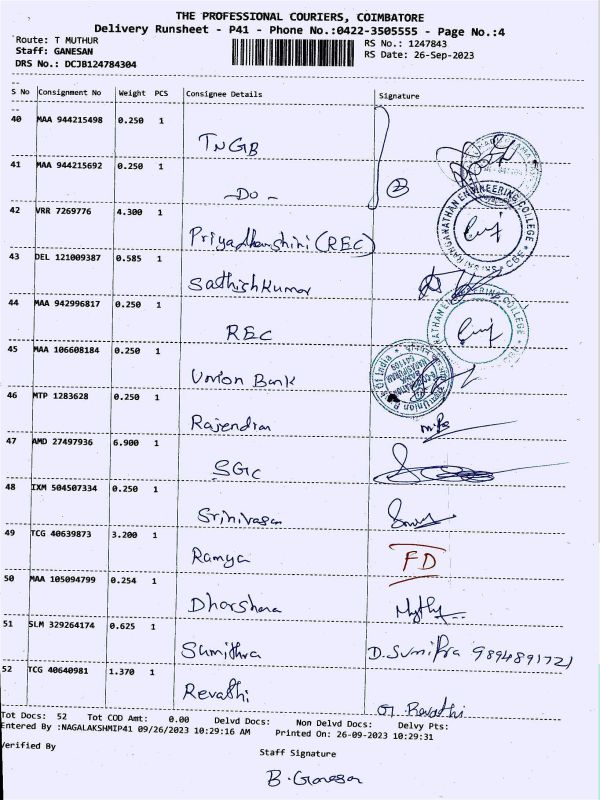 THE PROFESSIONAL COURIERS, COIMBATORE
Delivery Runsheet - P41 - Phone No.:0422-3505555 - Page No.:4
Route: T MUTHUR
RS No.: 1247843
Staff: GANESAN
RS Date: 26-Sep-2023
DRS No.: DCJB124784304
S No Consignment No Weight PCS Consignee Details Signature
40 MAA 944215498 0.250 1
TNGB
41 MAA 944215692 0.250 1
- Do - 2
42 VRR 7269776 4.300 1
Priyadharshini (REC)
43 DEL 121009387 0.585 1
Sathishkumar
44 MAA 942996817 0.250 1
REC
45 MAA 106608184 0.250 1
Union Bank
46 MTP 1283628 0.250 1
Rajendran
47 AMD 27497936 6.900 1
SGC
48 IXM 504507334 0.250 1
Srinivasan
49 TCG 40639873 3.200 1
Ramya FD
50 MAA 105094799 0.254 1
Dharshana
51 SLM 329264174 0.625 1
Sumithra D. Sumithra 9894891721
52 TCG 40640981 1.370 1
Revathi G Revathi
Tot Docs: 52 Tot COD Amt: 0.00 Delvd Docs: Non Delvd Docs: Delvy Pts:
Entered By :NAGALAKSHMIP41 09/26/2023 10:29:16 AM Printed On: 26-09-2023 10:29:31
Verified By
Staff Signature
B. Ganesan